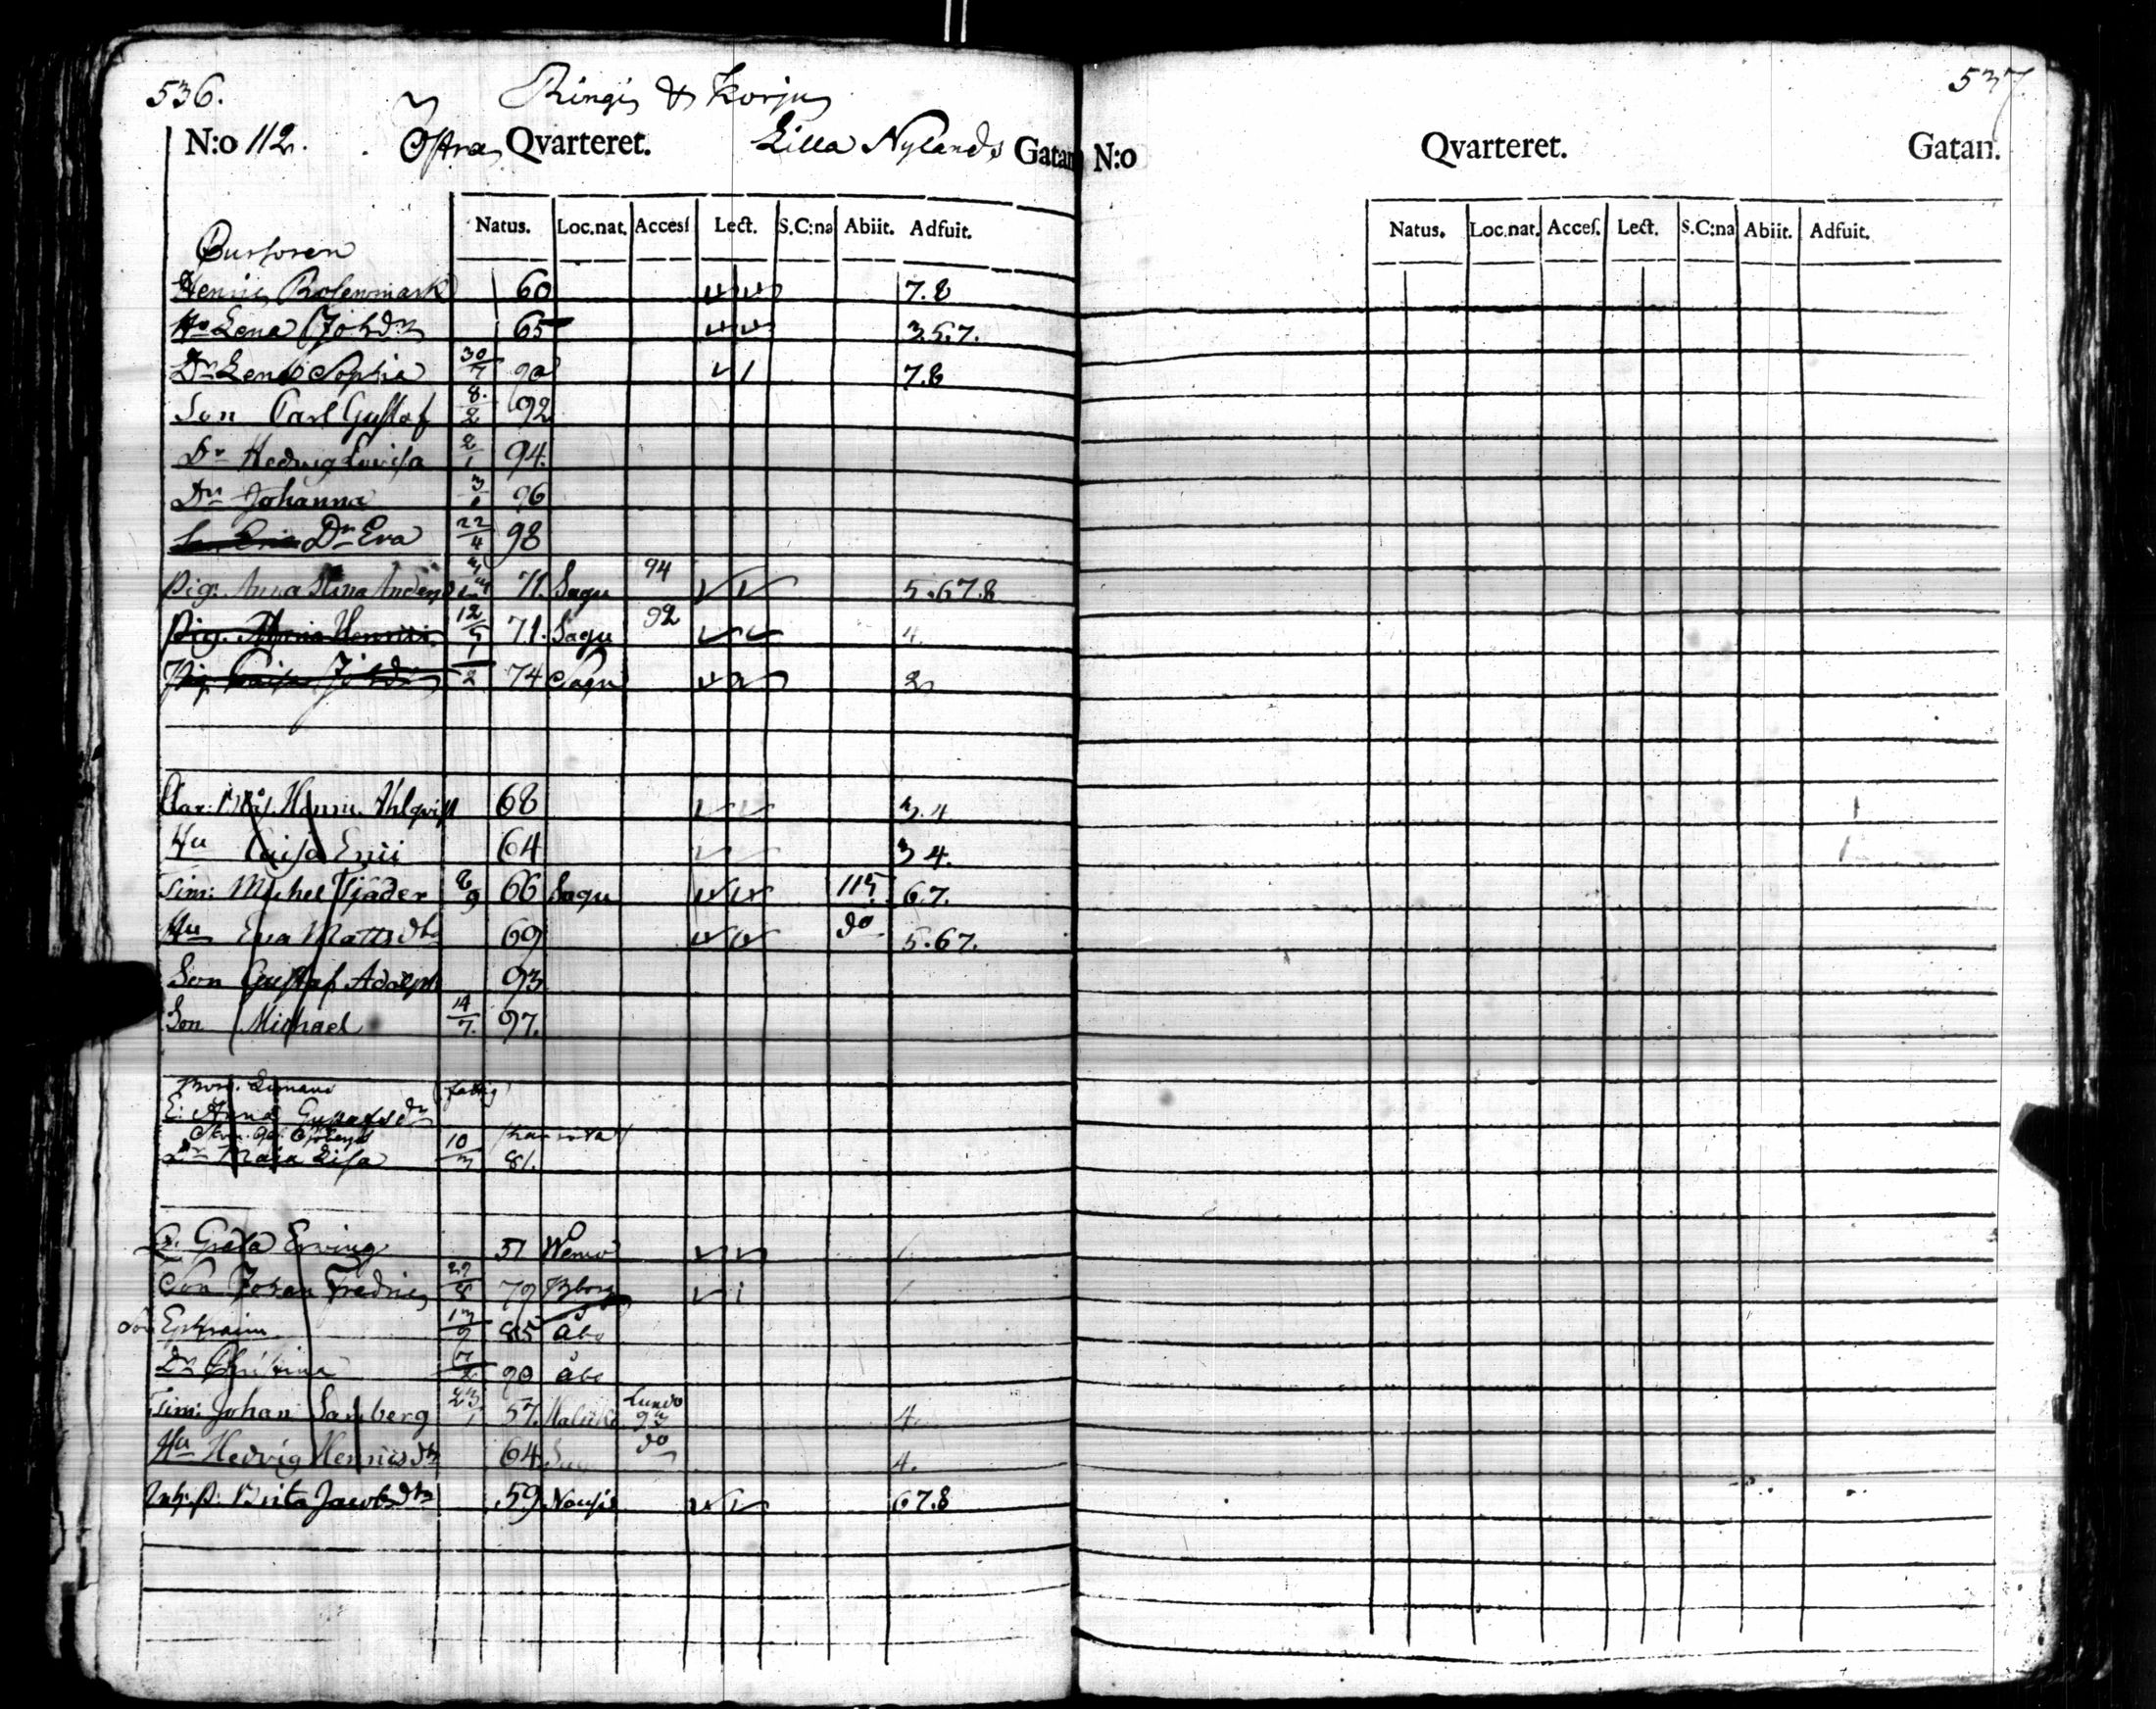 536.
Ringis & Korjus
N:o 112. Östra Qvarteret. Lilla Nylands Gatan
Natus. Loc.nat. Accesſ Lect. S.C:na Abiit. Adfuit.
Cursoren
Henric Rosenmark 60 7.8
Hu Lena Johdr 65 3.5.7.
Dr Lena Sophia 30/7 90 7.8
Son Carl Gustaf 8/2 92
Dr Hedvig Lovisa 2/1 94.
Dr Johanna 3/6 96
Dr Eva 22/4 98
Pig. Anna Stina Anders 71. Sagu 94 5.67.8
Pig. Maria Henrics 12/5 71. Sagu 92 4.
Pig. Caisa Johdr 1/2 74 Sagu 2
Henric Ahlqvist 68 3.4
Hu Caisa Erici 64 3 4.
Tim: Michel Tjäder 8/9 66 Sagu 115 6.7.
Hu Eva Mattsdtr 69 do 5.67.
Son Gustaf Adolph 93
Son Michael 14/7 97.
fattig
E. Anna Gustafsdr
Dr Maja Lisa 10/3 81.
E. Greta Erving 51 Wemo
Son Johan Fredric 29/8 79 Bborg
Son Ephraim 13/9 85 Åbo
Dr Christina 90 Åbo
Tim: Johan Sandberg 23/1 57. Lundo 93 4
Hu Hedvig Henricsdtr 64 do 4.
Inh. P. Brita Jacobsdtr 59 Nousis 67.8
537
N:o Qvarteret. Gatan.
Natus. Loc.nat. Acceſ. Lect. S.C:na Abiit. Adfuit.